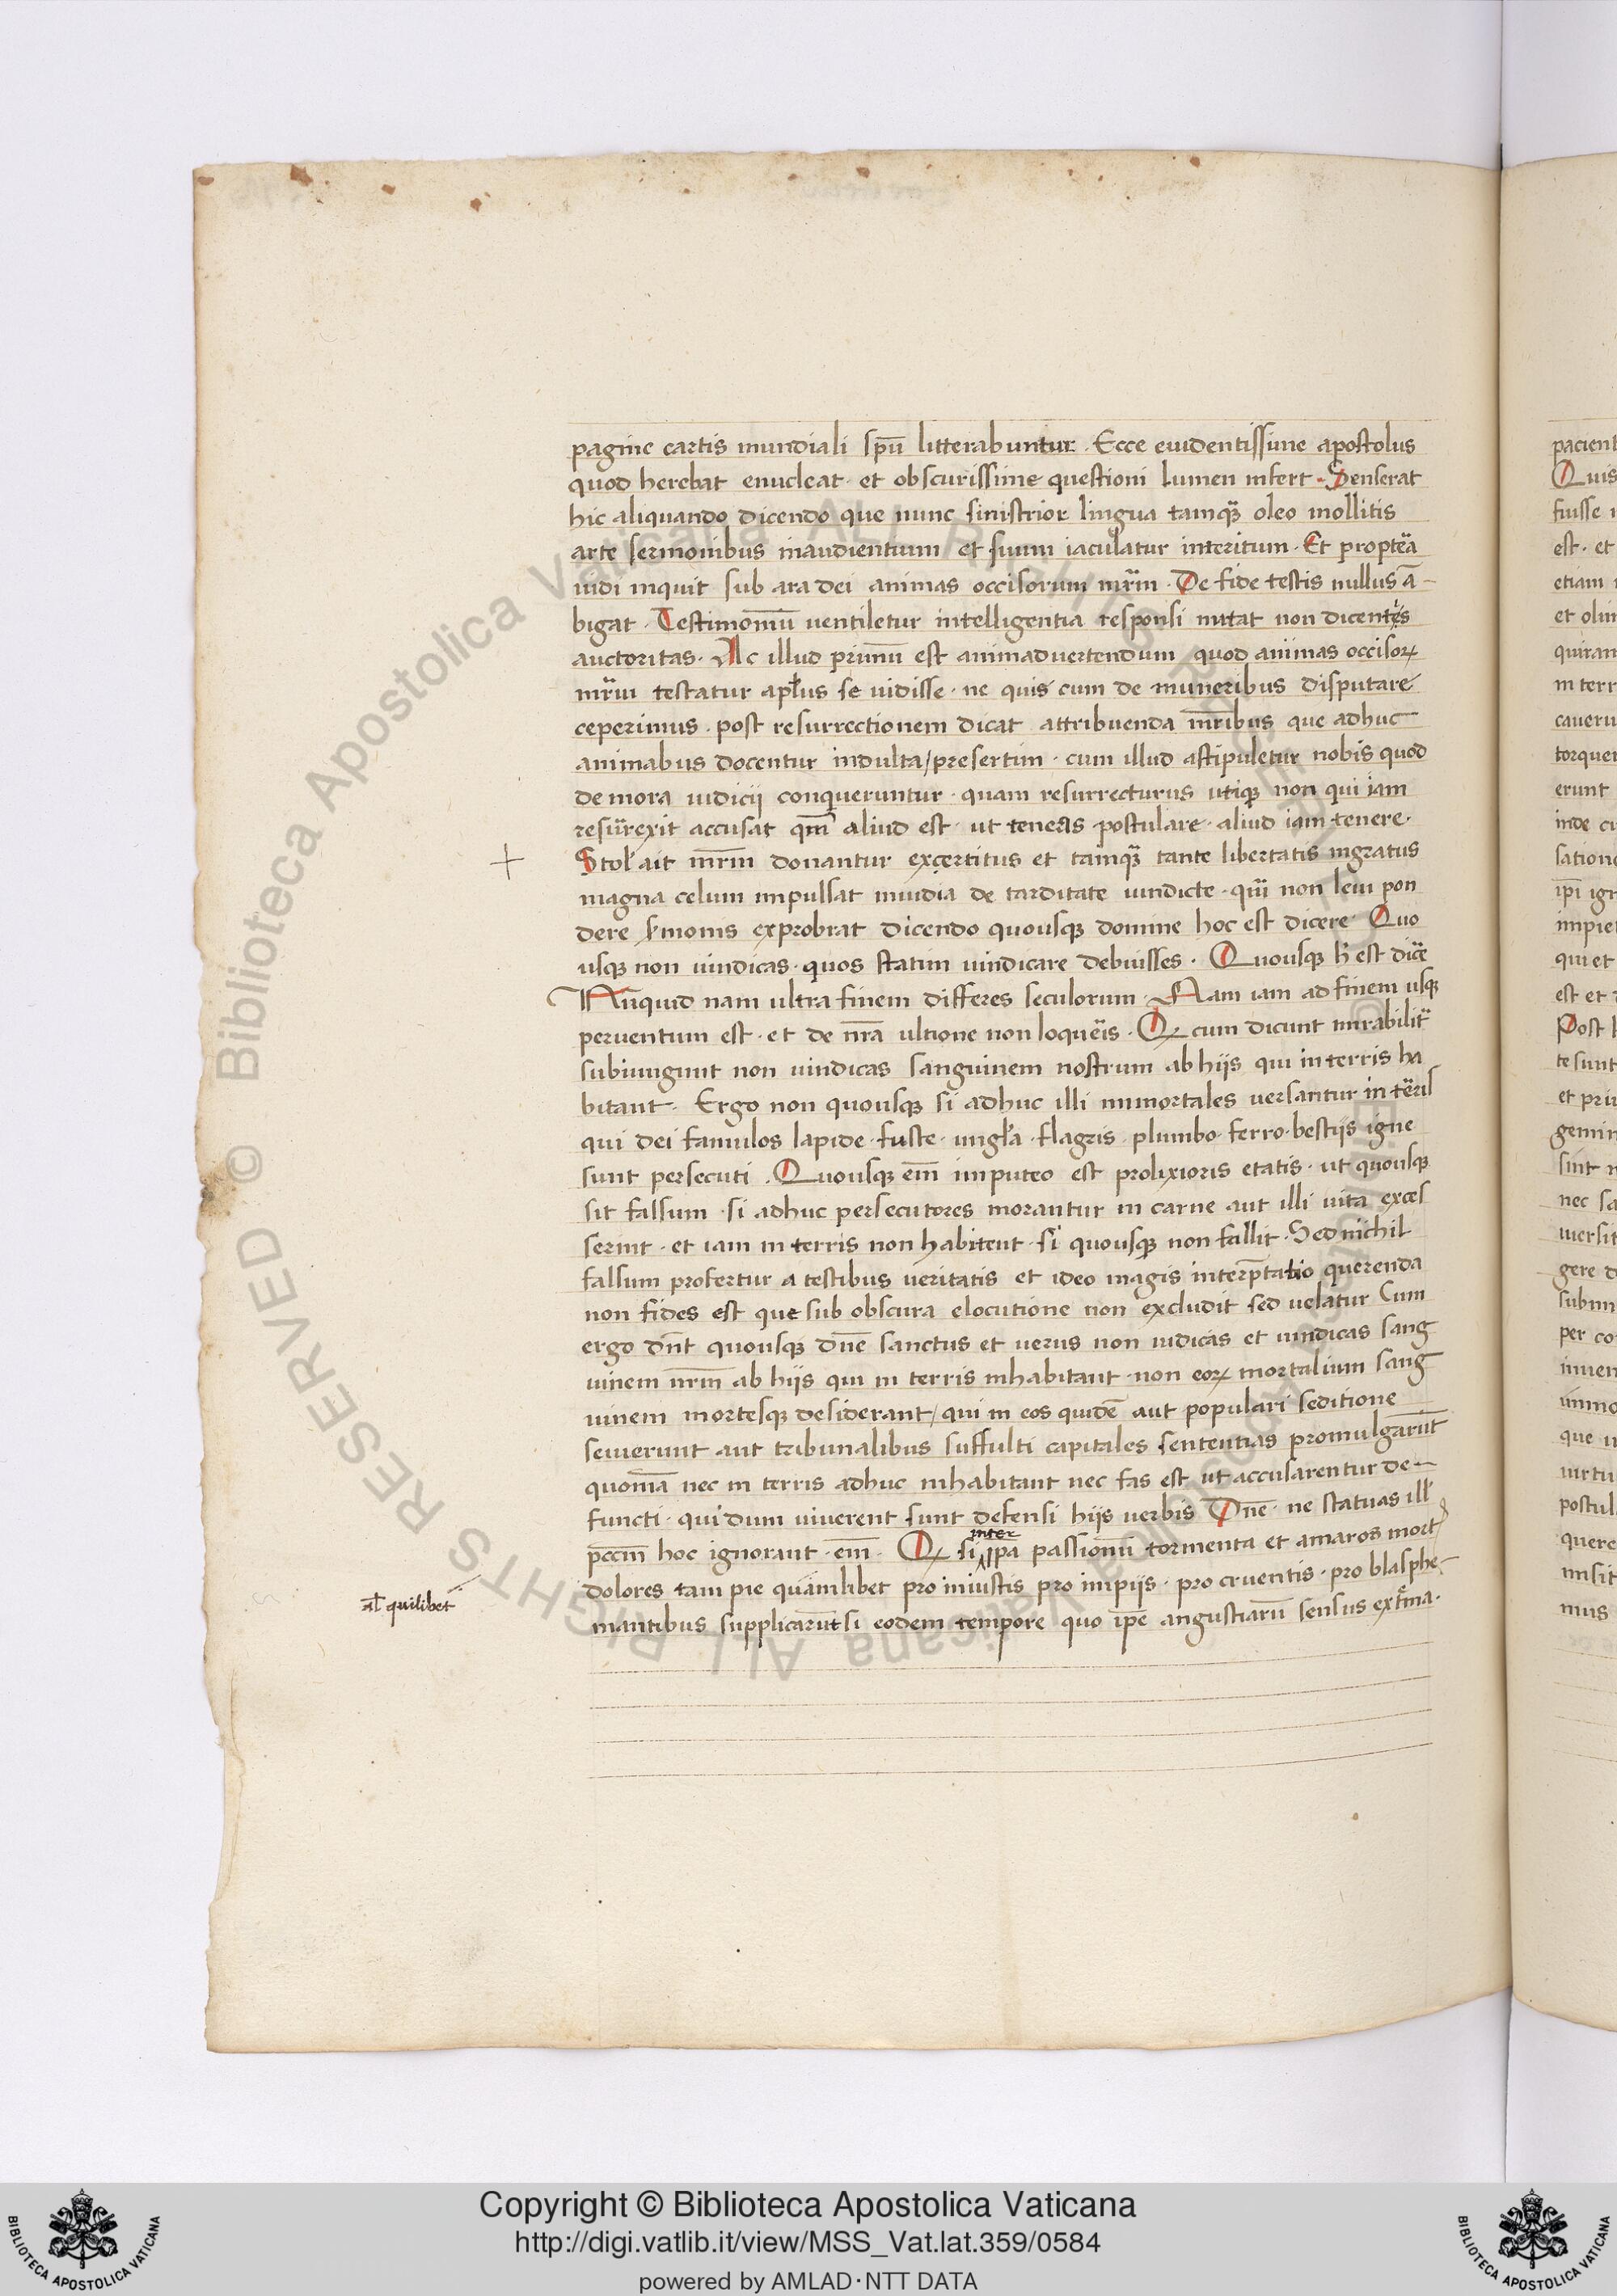 pagine cartis mundiali spũ litterabuntur · Ecce euidentissime apostolus
quod herebat enucleat · et obscurissime questioni lumen infert · Senserat
hic aliquando dicendo que nunc sinistrior lingua tamqꝫ oleo mollitis
arte sermonibus inaudientium et suum iaculatur interitum · Et propt̃ea
uidi inquit sub ara dei animas occisorum mr̃m · De fide testis nullus ã-
bigat · Testimoniũ uentiletur intelligentia responsi nutat non dicentis
auctoritas · Ac illud primũ est animaduertendum quod animas occisoꝝ
mr̃m testatur apl̃us se uidisse · ne quis cum de muneribus disputare
ceperimus · post resurrectionem dicat attribuenda mr̃ibus que adhuc
animabus docentur indulta / presertim · cum illud astipuletur nobis quod
de mora iudicij conqueruntur · quam resurrecturus utiqꝫ non qui iam
resũrexit accusat qm̃ aliud est · ut teneas postulare · aliud iam tenere ·
Stol' ait mr̃m donantur excertitus et tamqꝫ tante libertatis ingratus
magna celum impulsat inuidia de tarditate uindicte · qũi non leui pon
dere s̃monis exprobrat dicendo quousqꝫ domine hoc est dicere · Quo
usqꝫ non uindicas · quos statim uindicare debuisses · Quousqꝫ h̃ est dic̃e
Nũquid nam ultra finem differes seculorum · Nam iam ad finem usqꝫ
peruentum est · et de nr̃a ultione non loqueris · Qꝫ cum dicunt mirabilit̃
subiungunt non uindicas sanguinem nostrum ab hijs qui in terris ha
bitant · Ergo non quousqꝫ si adhuc illi immortales uersantur in t̃eris
qui dei famulos lapide · fuste · ungl̃a · flagris · plumbo · ferro · bestijs igne
sunt persecuti · Quousqꝫ em̃ imputeo est prolixioris etatis · ut quousqꝫ
sit falsum · si adhuc persecutores morantur in carne aut illi uita exces
serint · et iam in terris non habitent · si quousqꝫ non fallit · Sed nichil
falsum profertur a testibus ueritatis et ideo magis interp̃tatio querenda
non fides est que sub obscura elocutione non excludit sed uelatur Cum
ergo dñt quousqꝫ dñe sanctus et uerus non iudicas et uindicas sang
uinem nr̃m ab hijs qui in terris inhabitant · non eoꝝ mortalium sang
uinem mortesqꝫ desiderant / qui in eos quidẽ aut populari seditione
seuierunt aut tribunalibus suffulti capitales sententias promulgarũt
quoniã nec in terris adhuc inhabitant nec fas est ut accusarentur de-
functi · qui dum uiuerent sunt defensi hijs uerbis Dñe · ne statuas ill'
pcc̃m hoc ignorant · em̃ · Qꝫ si inter ip̃a passionũ tormenta et amaros mort'
dolores tam pie quamlibet pro iniustis pro impijs · pro cruentis · pro blasphe-
al' quilibet
mantibus supplicarũt si eodem tempore quo ip̃e angustiarũ sensus extĩma ·
pacient
Quis
est · et
etiam
et olim
quiram
in terr
caueru
torquer
erunt
inde cu
ip̃i igr
impiet
qui et
Post
te sunt
et pri
nec sa
gere d
per co
inuen
que u
uirtu
postul
quere
misit
mus
© Biblioteca Apostolica Vaticana ALL RIGHTS RESERVED
Copyright © Biblioteca Apostolica Vaticana
http://digi.vatlib.it/view/MSS_Vat.lat.359/0584
powered by AMLAD·NTT DATA
BIBLIOTECA APOSTOLICA VATICANA
BIBLIOTECA APOSTOLICA VATICANA